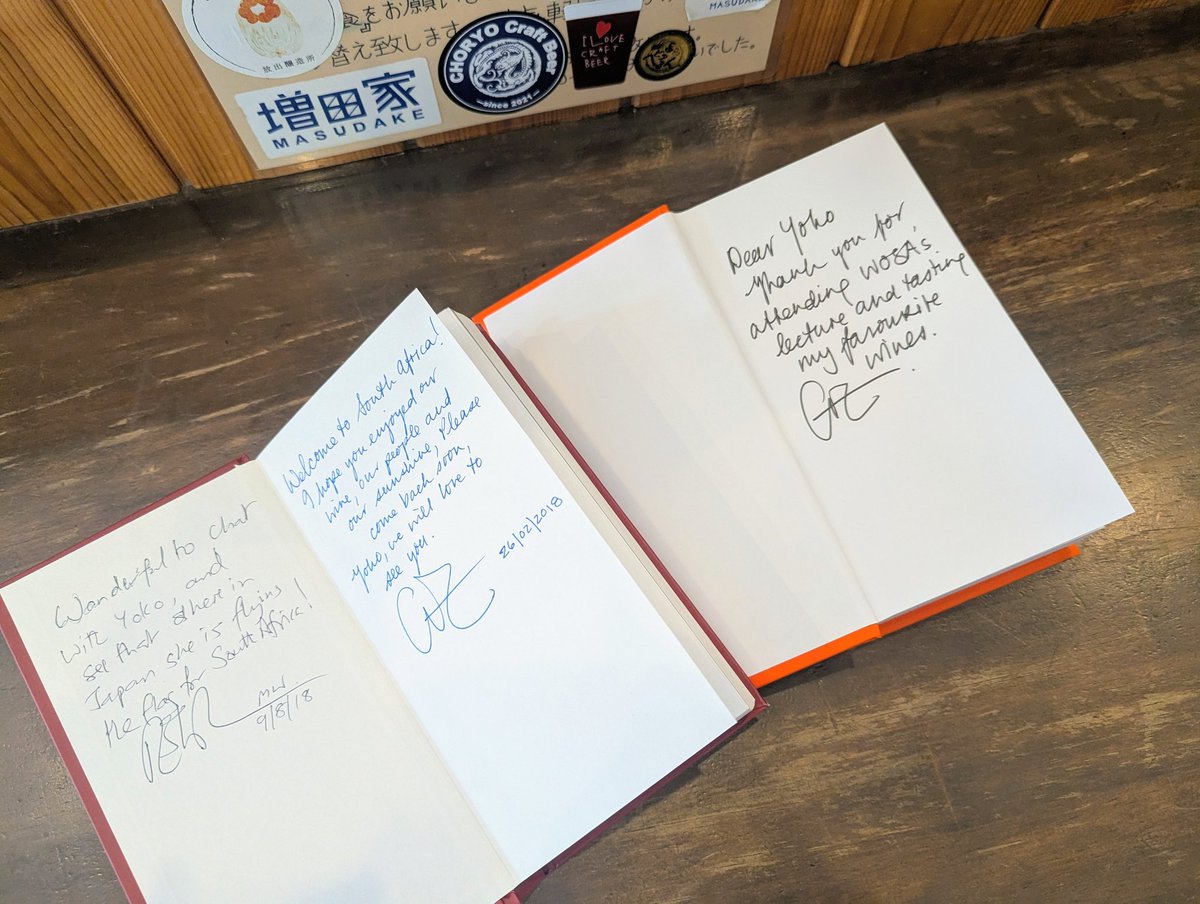 放出醸造所
食をお願い
替え致します
でした。
増田家
MASUDAKE
CHORYO Craft Beer
since 2021
I LOVE
CRAFT
BEER
MASUDAKE
Wonderful to chat
with Yoko, and
see that there in
Japan she is flying
the flag for South Africa!
MW
9/8/18
Welcome to South Africa!
I hope you enjoyed our
wine, our people and
our sunshine, Please
come back soon,
Yoko, we will love to
see you.
26/02/2018
Dear Yoko
Thank you for
attending WOSA's
lecture and tasting
my favourite
wines.